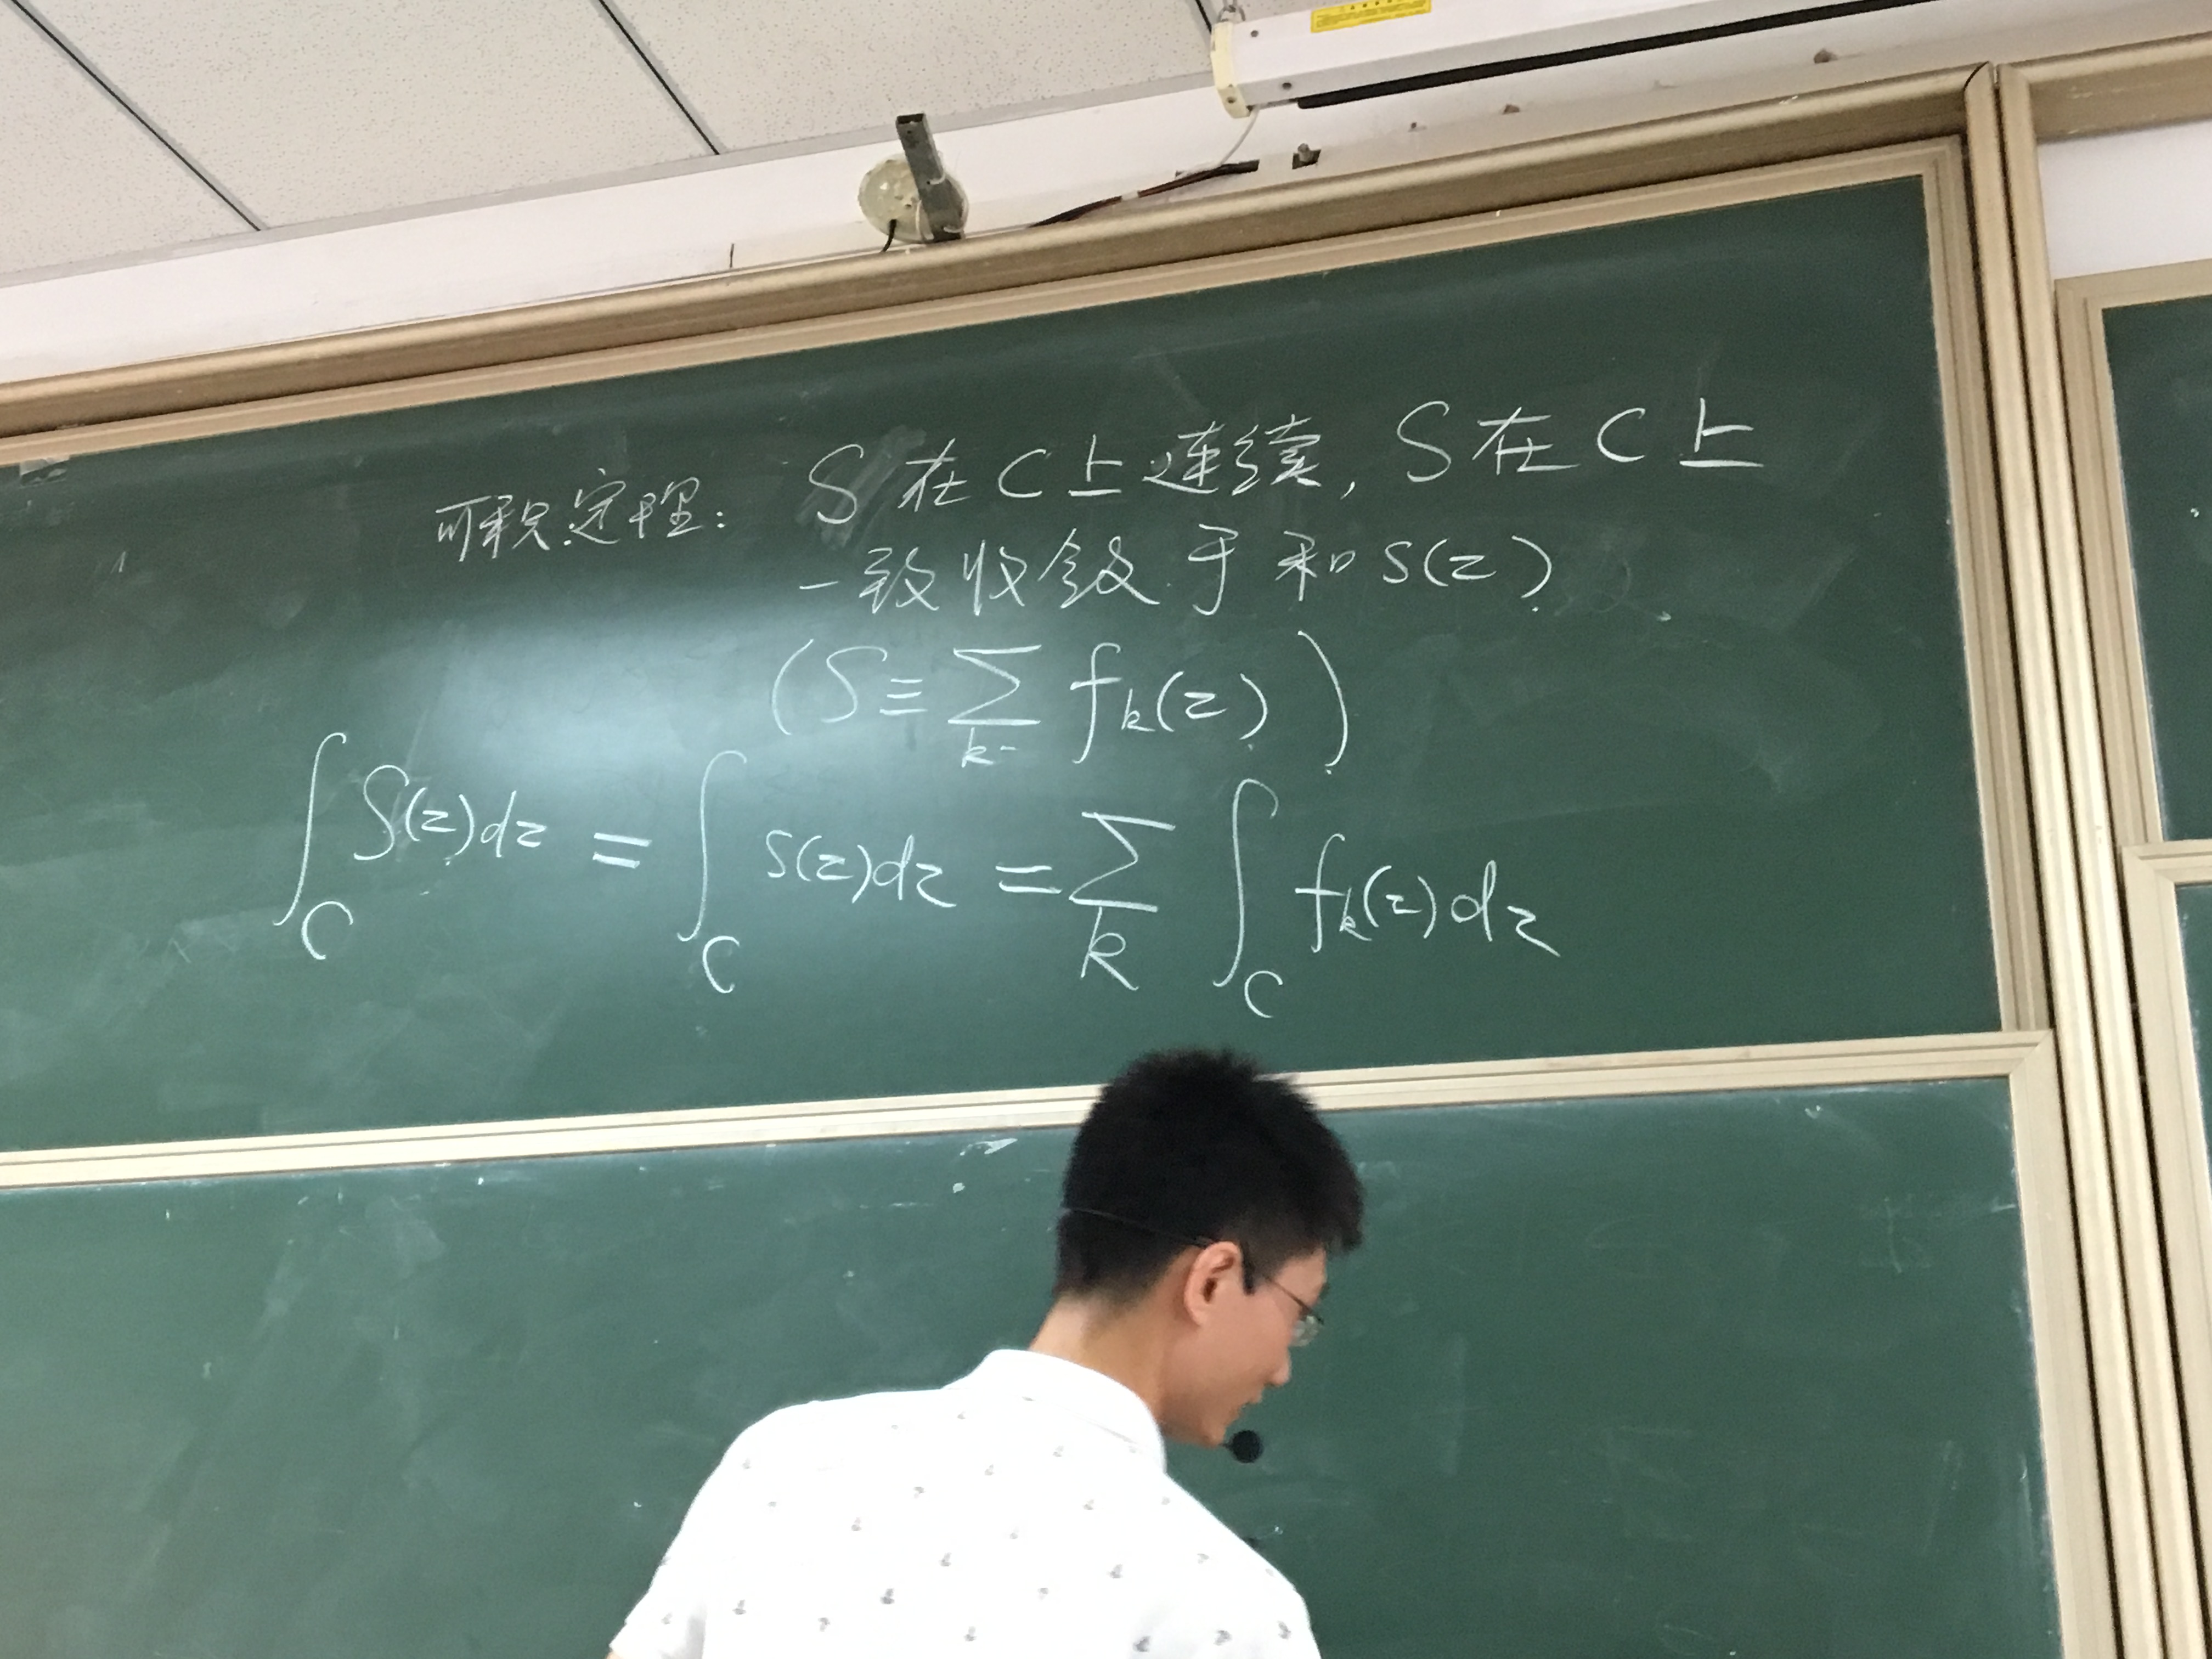 可积定理: S在C上连续, S在C上
一致收敛于和S(z).
(S≡∑ₖ fₖ(z))
∫_C S(z)dz = ∫_C s(z)dz = ∑ₖ ∫_C fₖ(z)dz